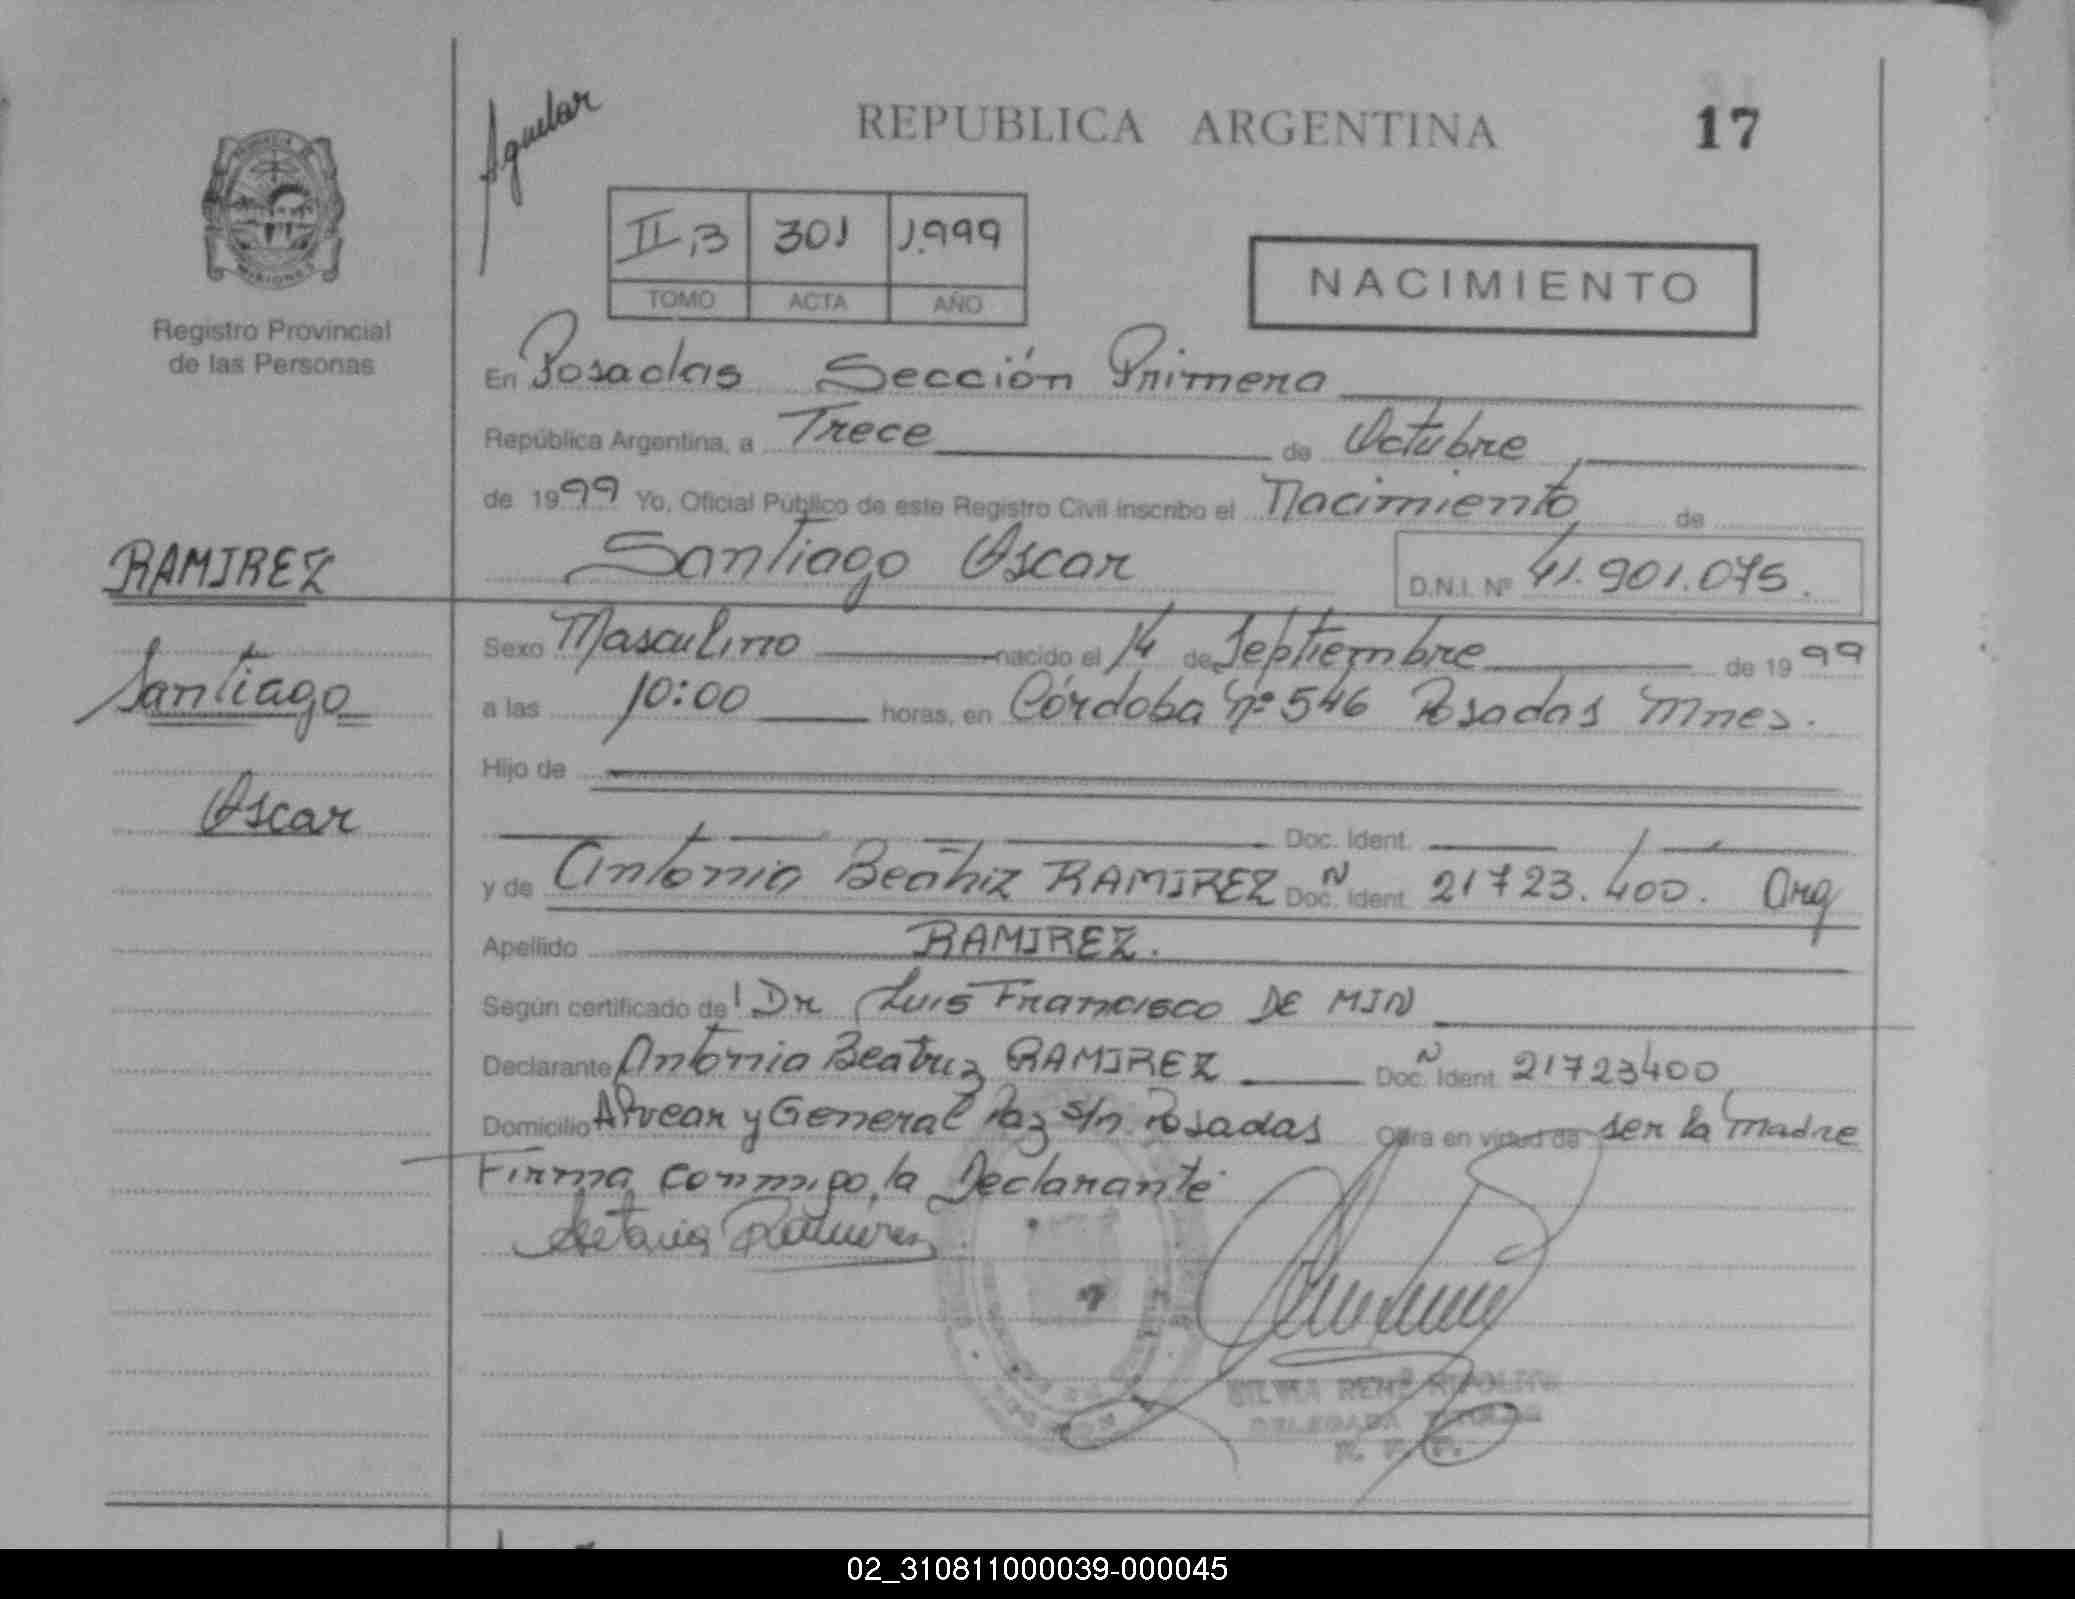 Aguilar
REPUBLICA ARGENTINA 17
II,3 301 1.999
TOMO ACTA AÑO
NACIMIENTO
MISIONES
Registro Provincial
de las Personas
En Posadas Sección Primera
República Argentina, a Trece de Octubre
de 1999 Yo, Oficial Público de este Registro Civil inscribo el Nacimiento de
Santiago Oscar D.N.I. Nº 41.901.075.
RAMIREZ
Santiago
Oscar
Sexo Masculino nacido el 14 de Septiembre de 1999
a las 10:00 horas, en Córdoba Nº 546 Posadas Mnes.
Hijo de
Doc. Ident.
y de Antonia Beatriz RAMIREZ Doc. Ident. 21723.400. Arg
Apellido RAMIREZ.
Según certificado del Dr Luis Francisco DE MIN
Declarante Antonia Beatriz RAMIREZ Doc. Ident. 21723400
Domicilio Alvear y General Paz s/n Posadas Obra en virtud de ser la madre
Firma conmigo, la Declarante
Ramirez
SILVIA RENÉ
DELEGADA TITULAR
R. P. P.
02_310811000039-000045